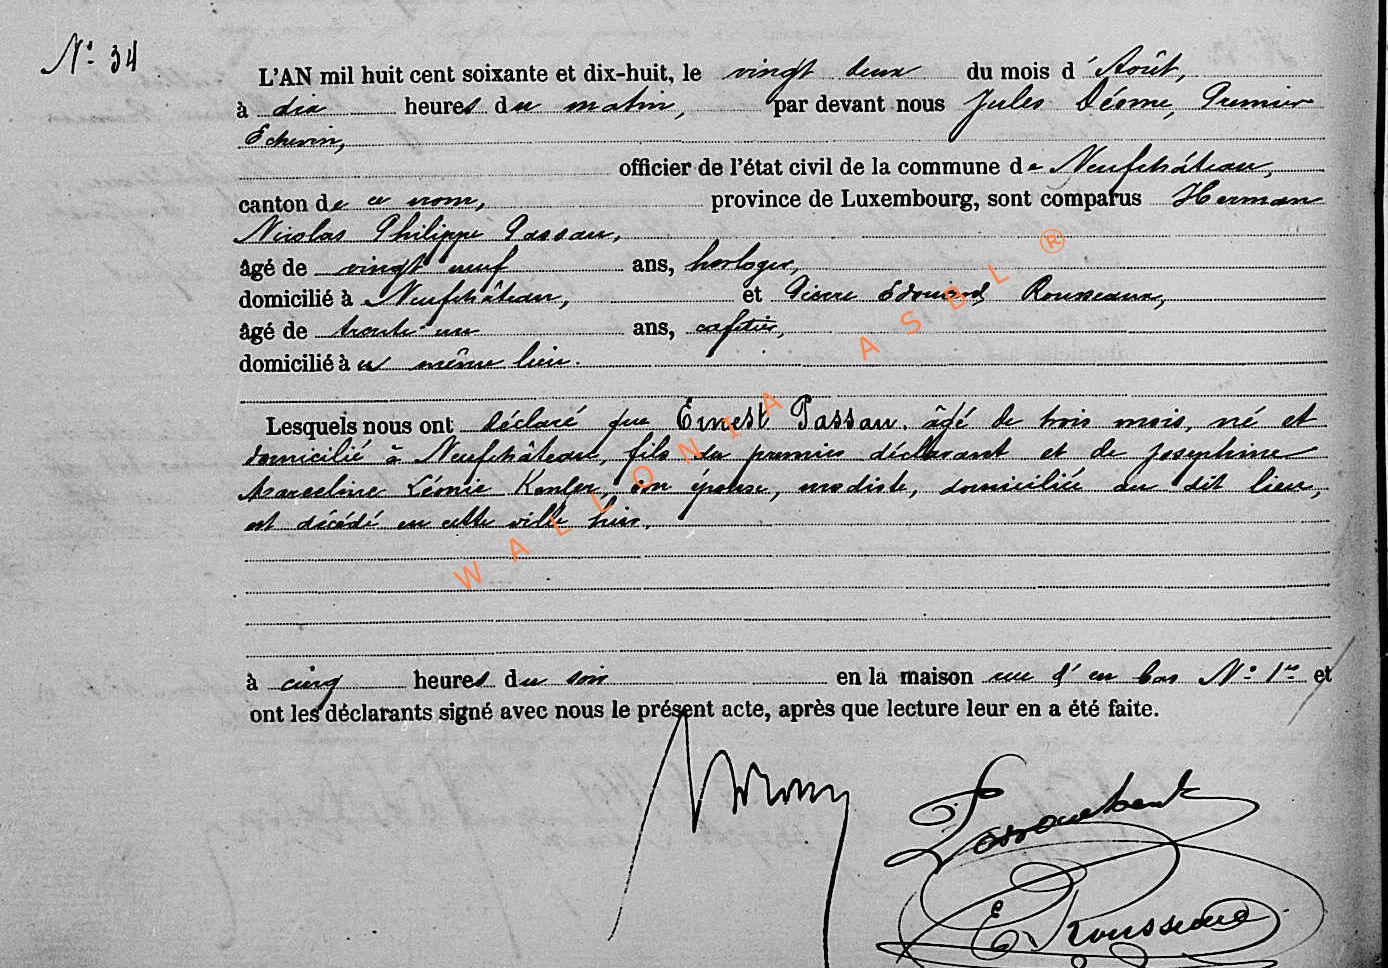 N° 34
L'AN mil huit cent soixante et dix-huit, le vingt deux du mois d'Août,
à dix heures du matin, par devant nous Jules Premier
Echevin,
officier de l'état civil de la commune de Neufchâteau,
canton de ce nom, province de Luxembourg, sont comparus Herman
Nicolas Philippe Passau,
âgé de vingt neuf ans, horloger,
domicilié à Neufchâteau, et Pierre Edouard Rousseaux,
âgé de trente-un ans, cafetier,
domicilié à ce même lieu.
Lesquels nous ont déclaré que Ernest Passau, âgé de trois mois, né et
domicilié à Neufchâteau, fils du premier déclarant et de Joséphine
Marceline Léonie son épouse, modiste, domiciliée au dit lieu,
est décédé en cette ville hier,
à cinq heures du soir en la maison rue d'en bas N° 1er et
ont les déclarants signé avec nous le présent acte, après que lecture leur en a été faite.
E Rousseaux
WALLONIA ASBL ®